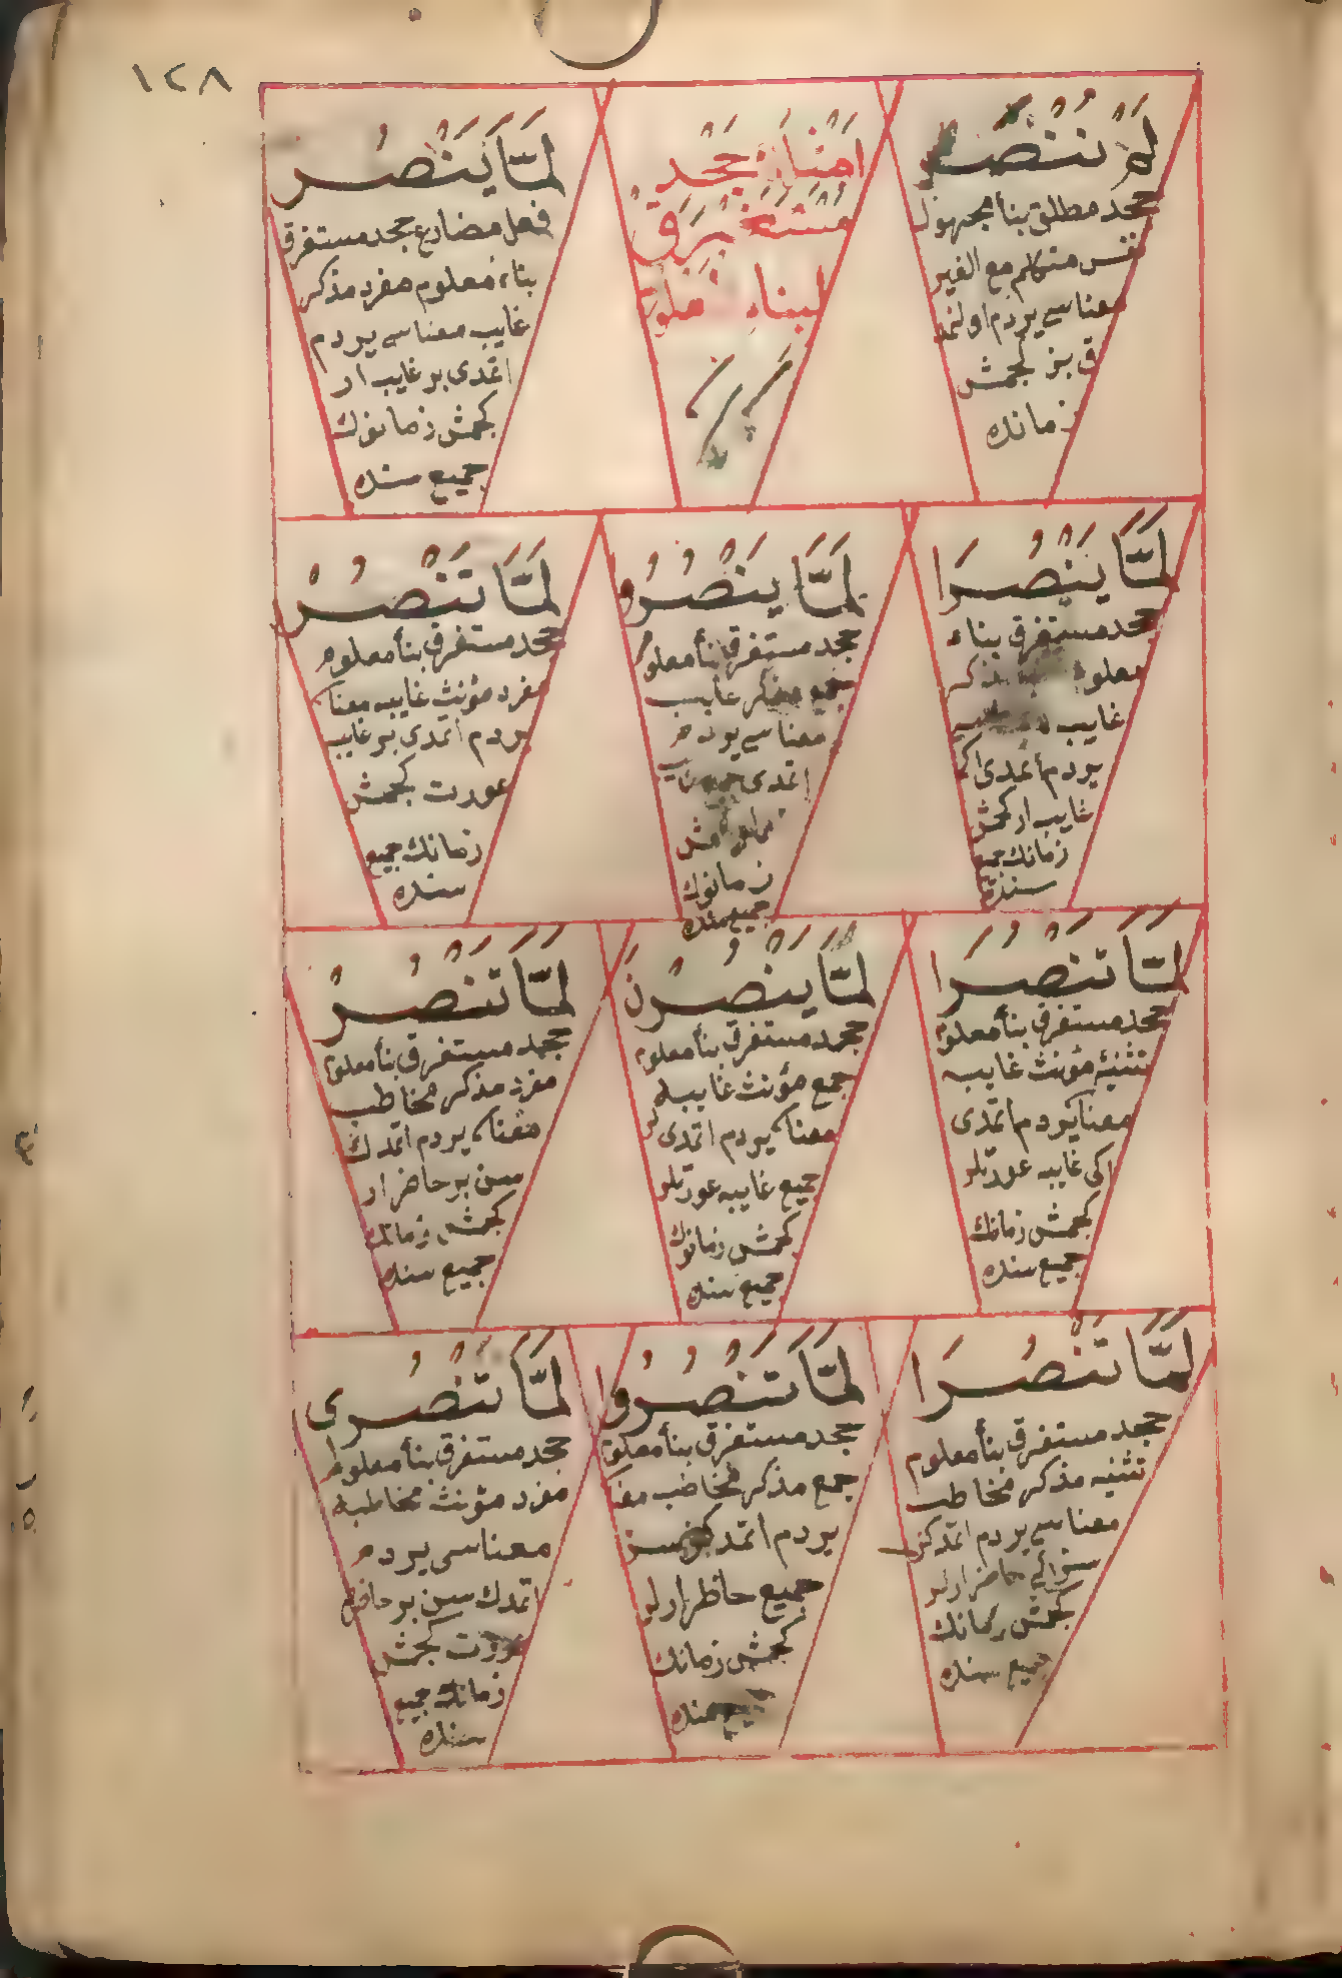 ١٢٨
لم ننصر
جحد مطلق بنا مجهول
نفس متكلم مع الغير
معناسي يردم اولنمد
ق بز كجمش
زمانده
امثلة جحد
مستغرق
لبناء معلوم
لمّا ينصر
فعل مضارع جحد مستغرق
بناء معلوم مفرد مذكر
غايب معناسي يردم
اتمدى بر غايب ار
كجمش زمانوك
جميع سنده
لمّا ينصرا
جحد مستغرق بناء
معلوم مذكر
غايب
يردم اتمدى اكى
غايب ار كجمش
زمانك جميع
سنده
لمّا ينصروا
جحد مستغرق بنأ معلوم
جمع مذكر غايب
معناسي يردم
اتمدى
زمانوك
جميع سنده
لمّا تنصر
جحد مستغرق بنأ معلوم
مفرد مؤنث غايبه معنا
يردم اتمدى بر غايب
عورت كجمش
زمانك جميع
سنده
لمّا تنصرا
جحد مستغرق بنأ معلوم
تثنيۀ مؤنث غايبه
معنا يردم اتمدى
اكى غايبه عورتلر
كجمش زمانك
جميع سنده
لمّا ينصرن
جحد مستغرق بنأ معلوم
جمع مؤنث غايبه
معنا يردم اتمدى لر
جميع غايبه عورتلر
كجمش زمانوك
جميع سنده
لمّا تنصر
جحد مستغرق بنأ معلوم
مفرد مذكر مخاطب
معنا يردم اتمدك
سن بر حاضر ار
كجمش زمانك
جميع سنده
لمّا تنصرا
جحد مستغرق بنأ معلوم
تثنيه مذكر مخاطب
معناسي يردم اتمدكز
سز اكى حاضر ارلر
كجمش زمانك
جميع سنده
لمّا تنصروا
جحد مستغرق بنأ معلوم
جمع مذكر مخاطب معنا
يردم اتمدكز سز
جميع حاظر ارلر
كجمش زمانك
جميع سنده
لمّا تنصرى
جحد مستغرق بنأ معلوم
مفرد مؤنث مخاطبه
معناسى يردم
اتمدك سن بر حاضر
عورت كجمش
زمانك جميع
سنده